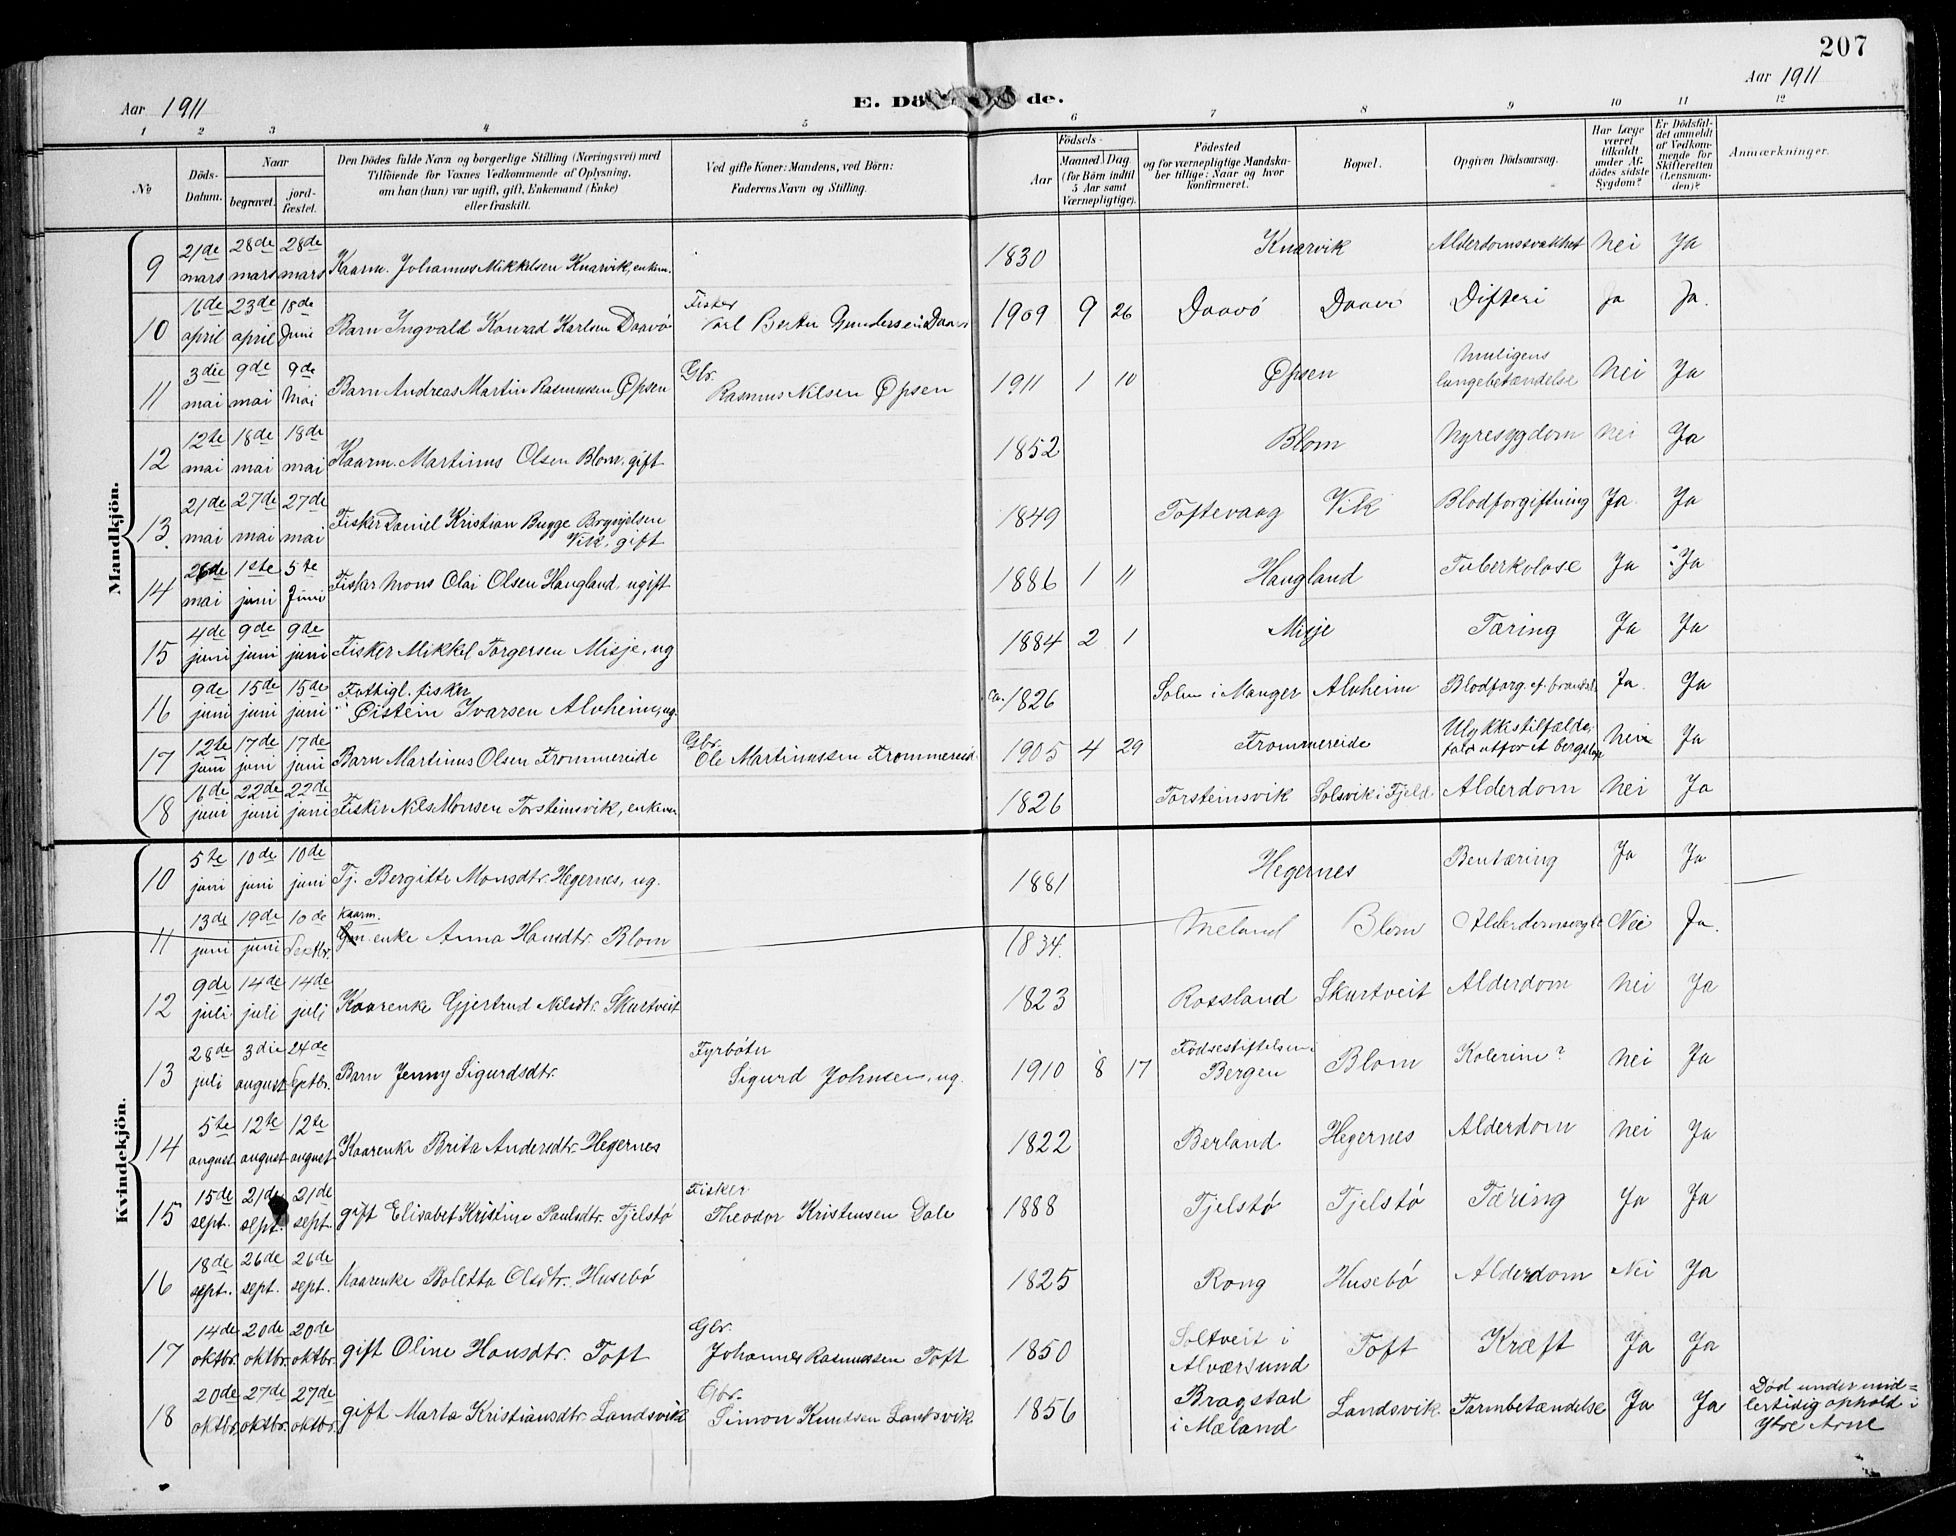 207
Aar 1911
Aar 1911
E. Dö de.
1 2 3 4 5 6 7 8 9 10 11 12
№
Döds-Datum.
Naar
begravet.
jord-fæstet.
Den Dödes fulde Navn og borgerlige Stilling (Næringsvei) med
Tilföiende for Voxnes Vedkommende af Oplysning,
om han (hun) var ugift, gift, Enkemand (Enke)
eller fraskilt.
Ved gifte Koner: Mandens, ved Börn:
Faderens Navn og Stilling.
Födsels-
Aar
Maaned Dag
(for Börn indtil
5 Aar samt
Værnepligtige).
Födested
og for værnepligtige Mandska-
ber tillige: Naar og hvor
konfirmeret.
Bopæl.
Opgiven Dödsaarsag.
Har Læge
været
tilkaldt
under Af-
dödes sidste
Sygdom?
Er Dödsfal-
det anmeldt
af Vedkom-
mende for
Skifteretten
(Lensman-
den)?
Anmærkninger.
Mandkjön.
9 21de mars 28de mars 28de mars Kaarm. Johannes Mikkelsen Knarvik, enkem. 1830 Knarvik Alderdomssvakhet Nei Ja
10 6de april 23de april 18de Juni Barn Ingvald Konrad Karlsen Daavø Fisker Karl Berter Gundersen Daavø 1909 9 26 Daavø Daavø Difteri Ja Ja.
11 3die mai 9de mai 9de Mai Barn Andreas Martin Rasmussen Øpsen Gbr. Rasmus Nilsen Øpsen 1911 1 10 Øpsen Muligens lungebetændelse Nei Ja
12 12te mai 18de mai 18de mai Kaarm. Martinus Olsen Blom, gift 1852 Blom Nyresygdom Nei Ja
13 21de mai 27de mai 27de mai Fisker Daniel Kristian Bugge Brynjelsen Vik, gift 1849 Toftevaag Vik Blodforgiftning Ja Ja
14 26de mai 1ste juni 5te Juni Fisker Mons Olai Olsen Haugland, ugift 1886 1 11 Haugland Tuberkulose Ja Ja
15 4de juni 9de juni 9de juni Fisker Mikkel Torgersen Misje, ug 1884 2 1 Misje Tæring Ja Ja
16 9de juni 15de juni 15de juni Fattigl. fisker Øistein Ivarsen Alvheim, ug. ca. 1826 i Manger Alvheim Blodforg. ef. Ja Ja
17 12te juni 17de juni 17de juni Barn Martinus Olsen Trommereide Gbr. Ole Martinussen Trommereide 1905 4 29 Trommereide Ulykkestilfælde, faldt utfor et Nei Ja
18 16de juni 22de juni 22de juni Fisker Nils Monsen Torsteinsvik, enkem 1826 Torsteinsvik Solsvik i Fjeld. Alderdom Nei Ja
Kvindekjön.
10 5te juni 10de juni 10de juni Tj. Bergitte Monsdtr. Hegernes, ug. 1881 Hegernes Bentæring Ja Ja
11 13de juni 19de juni 10de Septbr. Kaarm. enke Anna Hansdtr. Blom 1834. Meland Blom Nei Ja.
12 9de juli 14de juli 14de juli Kaarenke Gjertrud Nilsdtr. Skurtveit 1823 Rossland Skurtveit Alderdom Nei Ja
13 28de juli 3die august 24de Septbr. Barn Jenny Sigurdsdtr. Fyrbøter Sigurd Johnsen, ug. 1910 8 17 Fødsestiftelsen i Bergen Blom Kolerine? Nei Ja
14 5te august 12te august 12te august Kaarenke Brita Andersdtr. Hegernes 1822 Berland Hegernes Alderdom Nei Ja
15 15de sept. 21de sept. 21de sept. gift Elisabet Kristine Paulsdtr. Tjelstø Fisker Theodor Kristensen Dale 1888 Tjelstø Tjelstø Tæring Ja Ja
16 18de sept. 26de sept. 26de sept. Kaarenke Boletta Olsdtr. Husebø 1825 Rong Husebø Alderdom Nei Ja
17 14de oktbr. 20de oktbr. 20de oktbr. gift Oline Hansdtr. Toft Gbr. Johannes Rasmussen Toft 1850 Soltveit i Alværsund Toft Kræft Ja Ja
18 20de oktbr. 27de oktbr. 27de oktbr. gift Marta Kristiansdtr. Landsvik Gbr. Simon Knutsen Landsvik 1856 Bragstad i Mæland Landsvik. Tarmbetændelse Ja Ja Død under mid=lertidig ophold i Ytre Arne